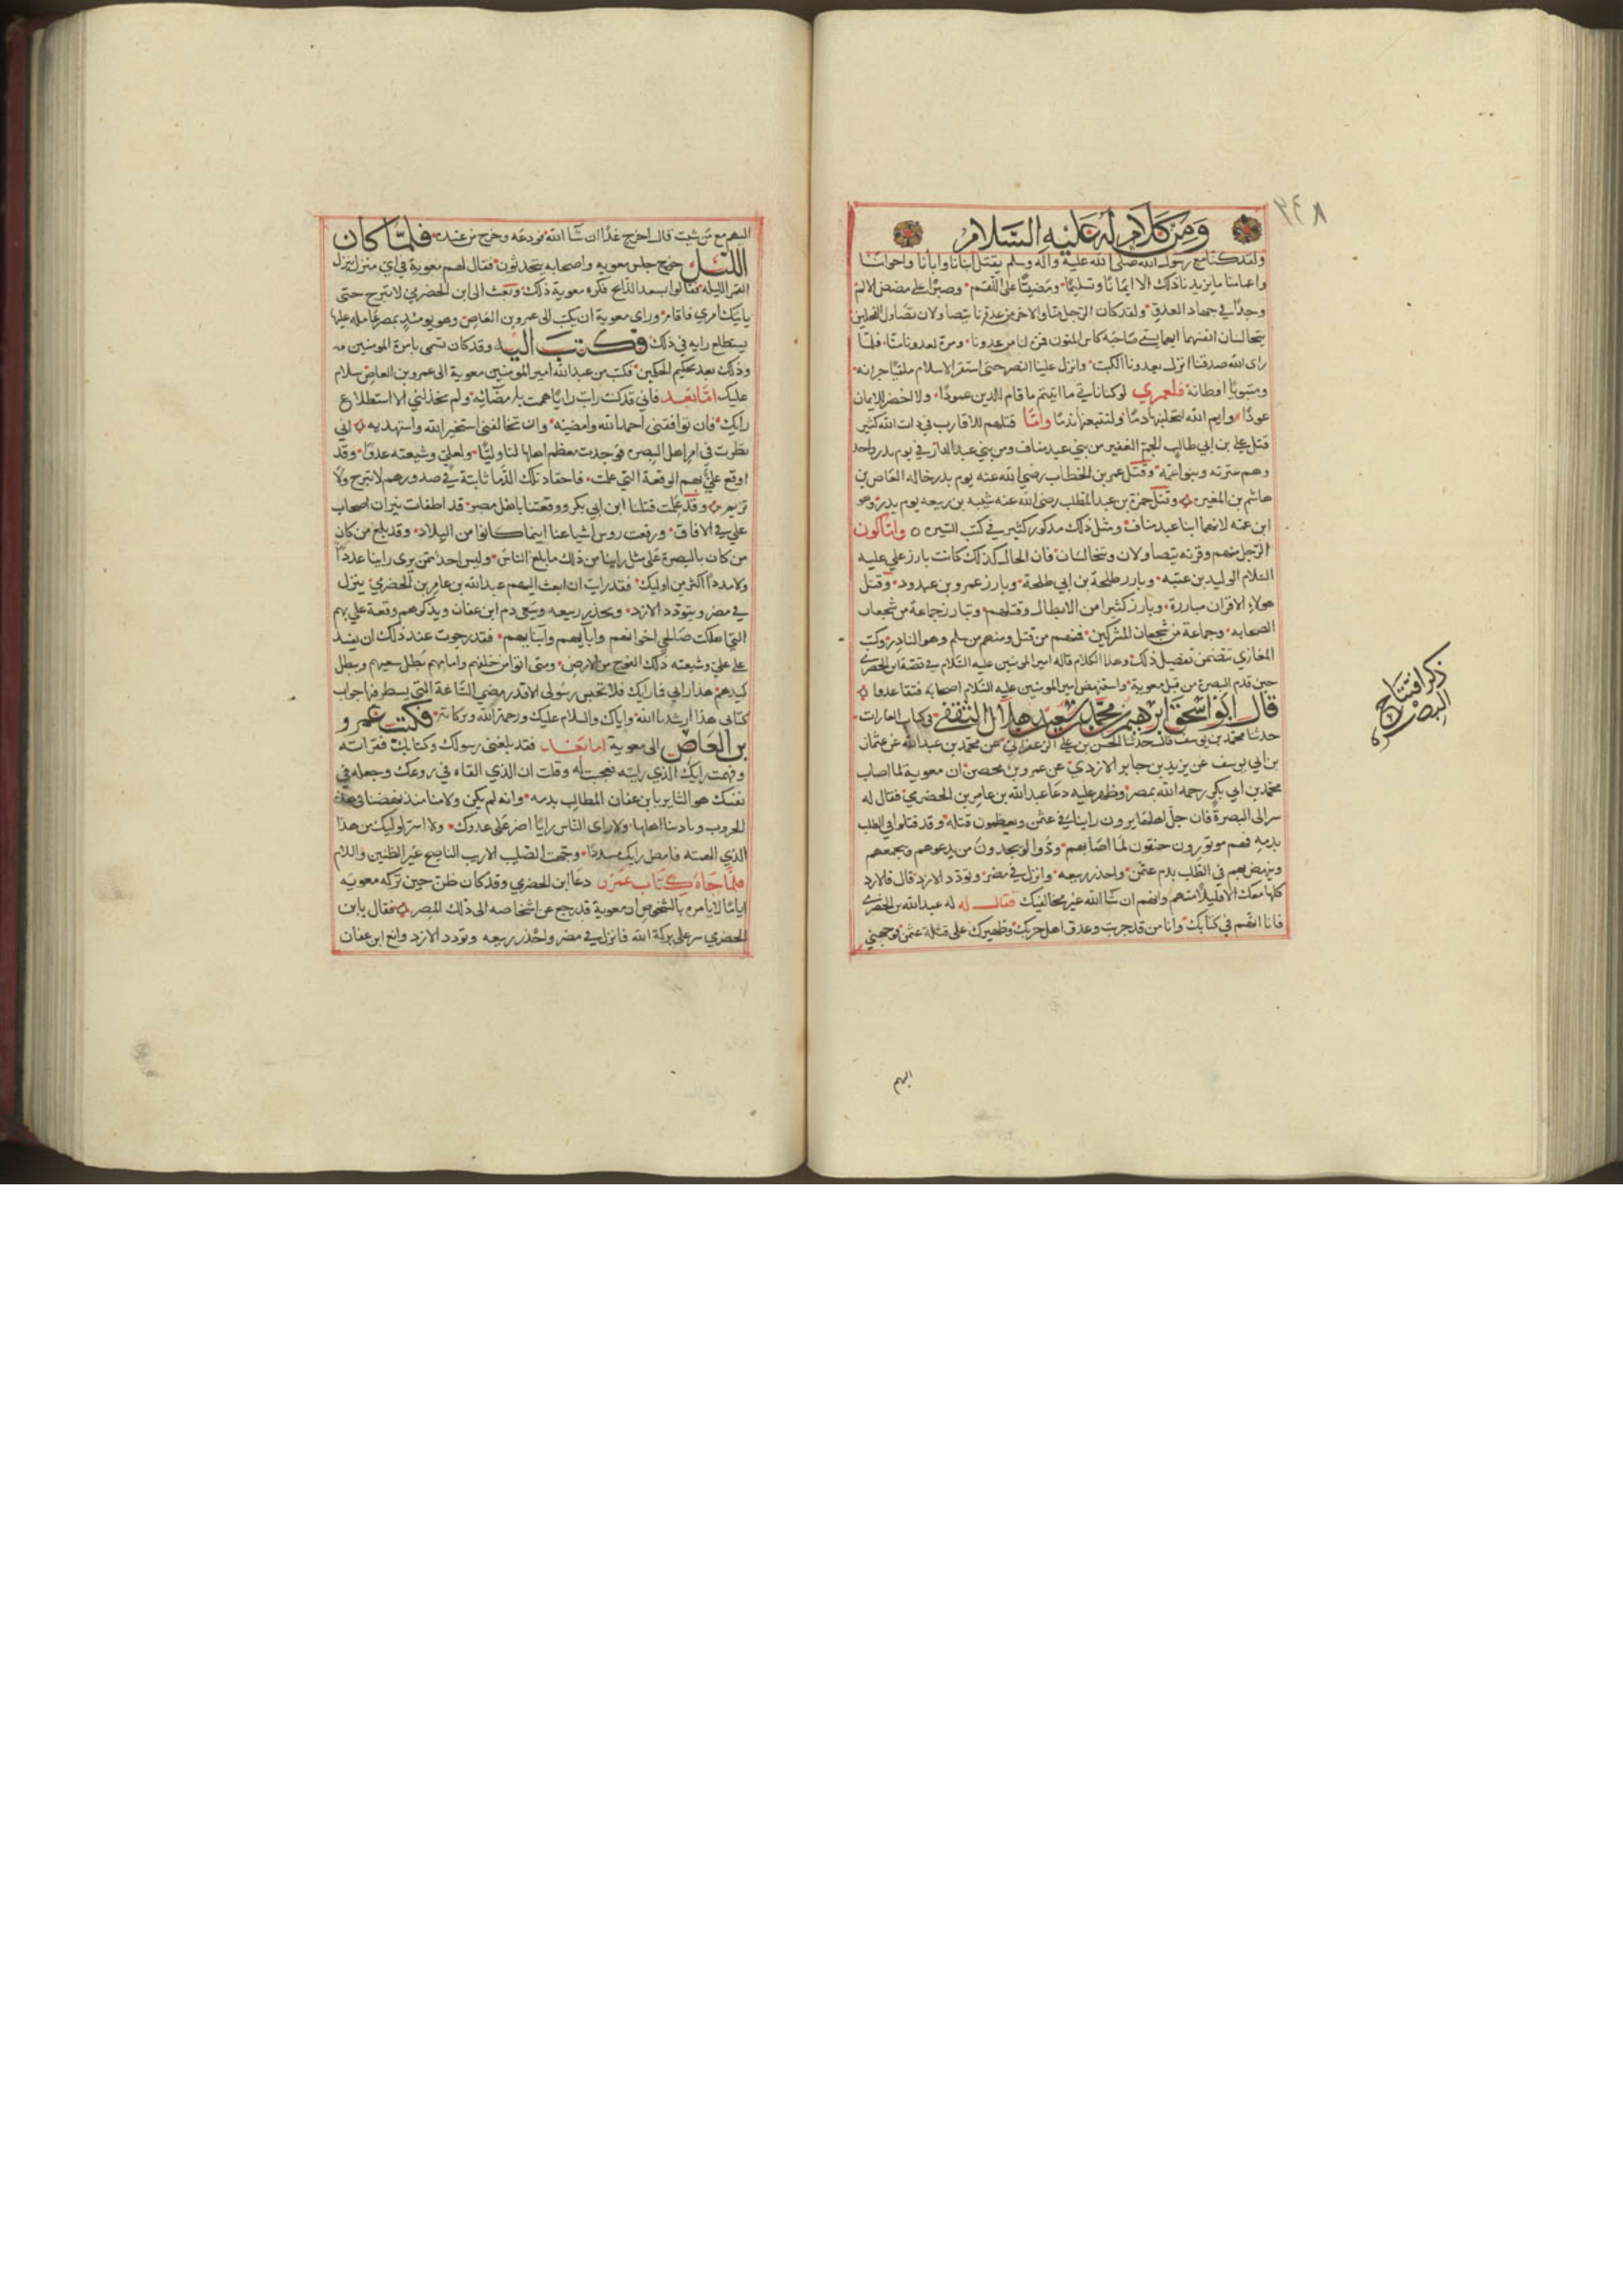 ومن كلام له عليه السلام
ولقد كنا مع رسول الله صلى الله عليه واله وسلم يقتل ابنانا وابانا واخواننا
واعمامنا ما يزيدنا ذلك الا ايمانا وتسليما ومضيا على اللقم وصبرا على مضض الالم
وجدا في جهاد العدو ولقد كان الرجل منا والاخر من عدونا يتصاولان تصاول الفحلين
يتخالسان انفسهما ايهما يسقي صاحبه كاس المنون فمرة لنا من عدونا ومرة لعدونا منا فلما
راى الله صدقنا انزل بعدونا الكبت وانزل علينا النصر حتى استقر الاسلام ملقيا جرانه
ومتبويا اوطانه فلعمري لو كنا ناتي ما اتيتم ما قام للدين عمود ولا اخضر للايمان
عود وايم الله لتحتلبنها دما ولتتبعنها ندما واما قتلهم للاقارب في ذات الله كثير
قتل علي بن ابي طالب الجم الغفير من بني عبد مناف ومن بني عبد الدار في يوم بدر واحد
وهم عترته وبنو عمه وقتل عمر بن الخطاب رضي الله عنه يوم بدر خاله العاص بن
هاشم بن المغيرة وقتل حمزة بن عبد المطلب رضي الله عنه شيبه بن ربيعه يوم بدر وهو
ابن عمه لانهما ابنا عبد مناف ومثل ذلك مذكور كثير في كتب السيره واما كون
الرجل منهم وقرنه يتصاولان ويتخالسان فان الحال كذلك كانت بارز علي عليه
السلام الوليد بن عتبه وبارز طلحة بن ابي طلحة وبارز عمرو بن عبدود وقتل
هولاء الاقران مبارزة وبارز كثيرا من الابطال وقتلهم وتبارز جماعة من شجعان
الصحابه وجماعة من شجعان المشركين فمنهم من قتل ومنهم من سلم وهو النادر وكتب
المغازي تتضمن تفصيل ذلك وهذا الكلام قاله امير المومنين عليه السلام في قصة ابن الحضرمي
حين قدم البصرة من قبل معوية واستنهض امير المومنين عليه السلام اصحابه فتقاعدوا
قال ابو اسحق ابرهيم بن محمد بن سعيد بن هلال الثقفي في كتاب الغارات
حدثنا محمد بن يوسف قال حدثنا الحسن بن علي الزعفراني عن محمد بن عبد الله عن عثمان
بن ابي يوسف عن يزيد بن جابر الازدي عن عمرو بن محصن ان معوية لما اصاب
محمد بن ابي بكر رحمه الله بمصر وظهر عليه دعا عبد الله بن عامر بن الحضرمي فقال له
سر الى البصرة فان جل اهلها يرون راينا في عثمن ويعظمون قتله وقد قتلوا في الطلب
بدمه فهم موتورون حنقون لما اصابهم ودوا لو يجدون من يدعوهم ويجمعهم
وينهض بهم في الطلب بدم عثمن واحذر ربيعه وانزل في مضر وتودد الازد قال فالازد
كلها معك الا قليلا منهم وانهم ان شا الله غير مخالفيك فقال له عبد الله بن الحضرمي
فانا اسهم في كنانتك وانا من قد جربت وعدو اهل حربك وظهيرك على قتلة عثمن فوجهني
ذكر افتتاح
البصره
اليهم
اليهم متى شيت قال اخرج غدا ان شا الله فودعه وخرج من عنده فلما كان
الليل جلس معويه واصحابه يتحدثون فقال لهم معوية في اي منزل ينزل
القمر الليلة فقالوا بسعد الذابح فكره معوية ذلك وبعث الى ابن الحضرمي لا تبرح حتى
ياتيك امري فاقام وراى معوية ان يكتب الى عمرو بن العاص وهو يومئذ بمصر عامله عليها
يستطلع رايه في ذلك فكتب اليه وقد كان تسمى بامرة المومنين
وذلك بعد تحكيم الحكمين فكتب من عبد الله امير المومنين معوية الى عمرو بن العاص سلام
عليك اما بعد فاني قد كنت رايت رايا هممت بامضائه ولم يخذلني الا استطلاع
رايك فان توافقني احمد الله وامضيه وان تخالفني استخير الله واستهديه اني
نظرت في امر اهل البصره فوجدت معظم اهلها لنا وليا ولعلي وشيعته عدوا وقد
اوقع علي بهم الوقعة التي علمت فاحقاد تلك الدما ثابتة في صدورهم لا تبرح ولا
تريم وقد علمت قتلنا ابن ابي بكر ووقعتنا باهل مصر قد اطفات نيران اصحاب
علي في الافاق ورفعت روس اشياعنا اينما كانوا من البلاد وقد بلغ من كان
من كان بالبصرة على مثل راينا من ذلك ما بلغ الناس وليس احد ممن يرى راينا عددا
ولا مددا اكثر من اوليك فقد رايت ان ابعث اليهم عبد الله بن عامر بن الحضرمي ينزل
في مضر ويتودد الازد ويحذر ربيعه وينعى دم ابن عفان ويذكرهم وقعة علي بهم
التي اهلكت صالحي اخوانهم وابايهم وابنايهم فقد رجوت عند ذلك ان يفسد
على علي وشيعته ذلك الفرج من الارض ومتى اتوا من خلفهم وامامهم يضل سعيهم ويبطل
كيدهم هذا رايي فما رايك فلا تحبس رسولي الا قدر مضي الساعة التي ينتظر فيها جواب
كتابي هذا ارشدنا الله واياك والسلام عليك ورحمة الله وبركاته فكتب عمرو
بن العاص الى معوية اما بعد فقد بلغني رسولك وكتابك فقراته
وفهمت رايك الذي رايته فعجبت له وقلت ان الذي القاه في روعك وجعله في
نفسك هو الثاير بابن عفان المطالب بدمه وانه لم يكن ولا منا منذ نهضنا في هذه
الحروب ونادينا اهلها ولا راى الناس رايا اضر على عدوك ولا اسر لوليك من هذا
الذي الهمته فامض رايك مسددا وجهت الصليب الاريب الناصح غير الظنين والسلام
فلما جاءه كتاب عمرو دعا ابن الحضرمي وقد كان ظن حين تركه معويه
اياما لا يامره بالشخوص ان معوية قد رجع عن اشخاصه الى ذلك المصر فقال يا بن
الحضرمي سر على بركة الله فانزل في مضر واحذر ربيعه وتودد الازد وانع ابن عفان